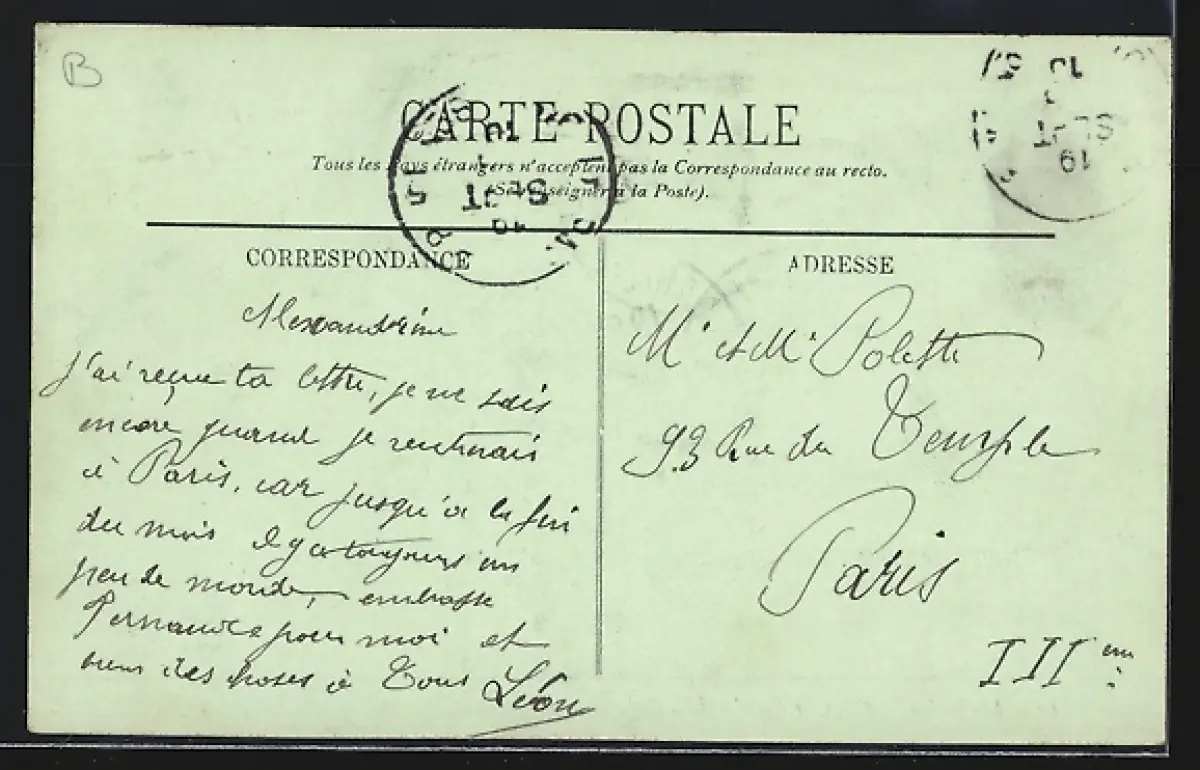 B
CARTE POSTALE
Tous les pays étrangers n'acceptent pas la Correspondance au recto.
(Se renseigner à la Poste).
CORRESPONDANCE
Alexandrine
J'ai reçue ta lettre, je ne sais
encore quand je rentrerais
à Paris, car jusqu'à la fin
du mois il y a toujours un
peu de monde, embrasse
Fernande pour moi et
bien des choses à Tous Léon
ADRESSE
Mr et Me Polette
93 Rue du Temple
Paris
IIIem
SEPT
10
SEPT
19